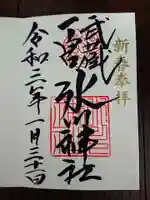 新春奉拝
武蔵
一宮
氷川神社
令和三年一月三十日